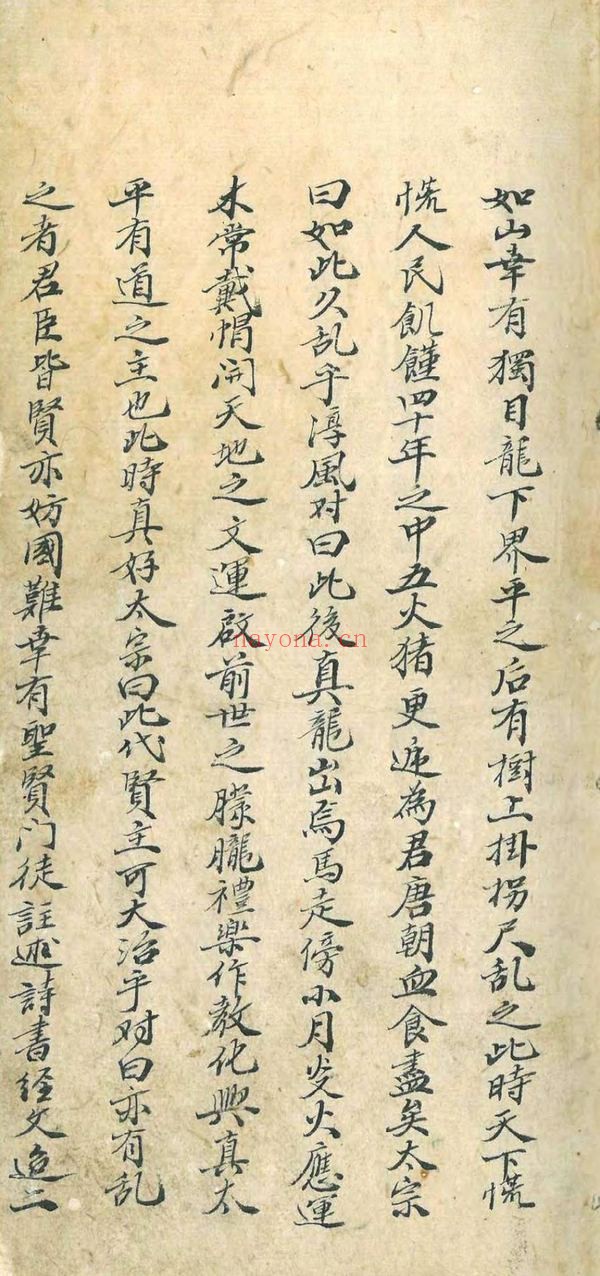 如山幸有獨目龍下界平之后有樹上掛拐尺乱之此時天下慌
慌人民飢饉四十年之中五火猪更迍為君唐朝血食盡矣太宗
曰如此久乱乎淳風对曰此後真龍出焉馬走傍小月炎火應運
木常戴帽開天地之文運啟前世之朦朧禮樂作教化興真太
平有道之主也此時真好太宗曰此代賢主可大治乎对曰亦有乱
之者君臣皆賢亦妨國難幸有聖賢门徒註述詩書经文迨二
nayona.cn